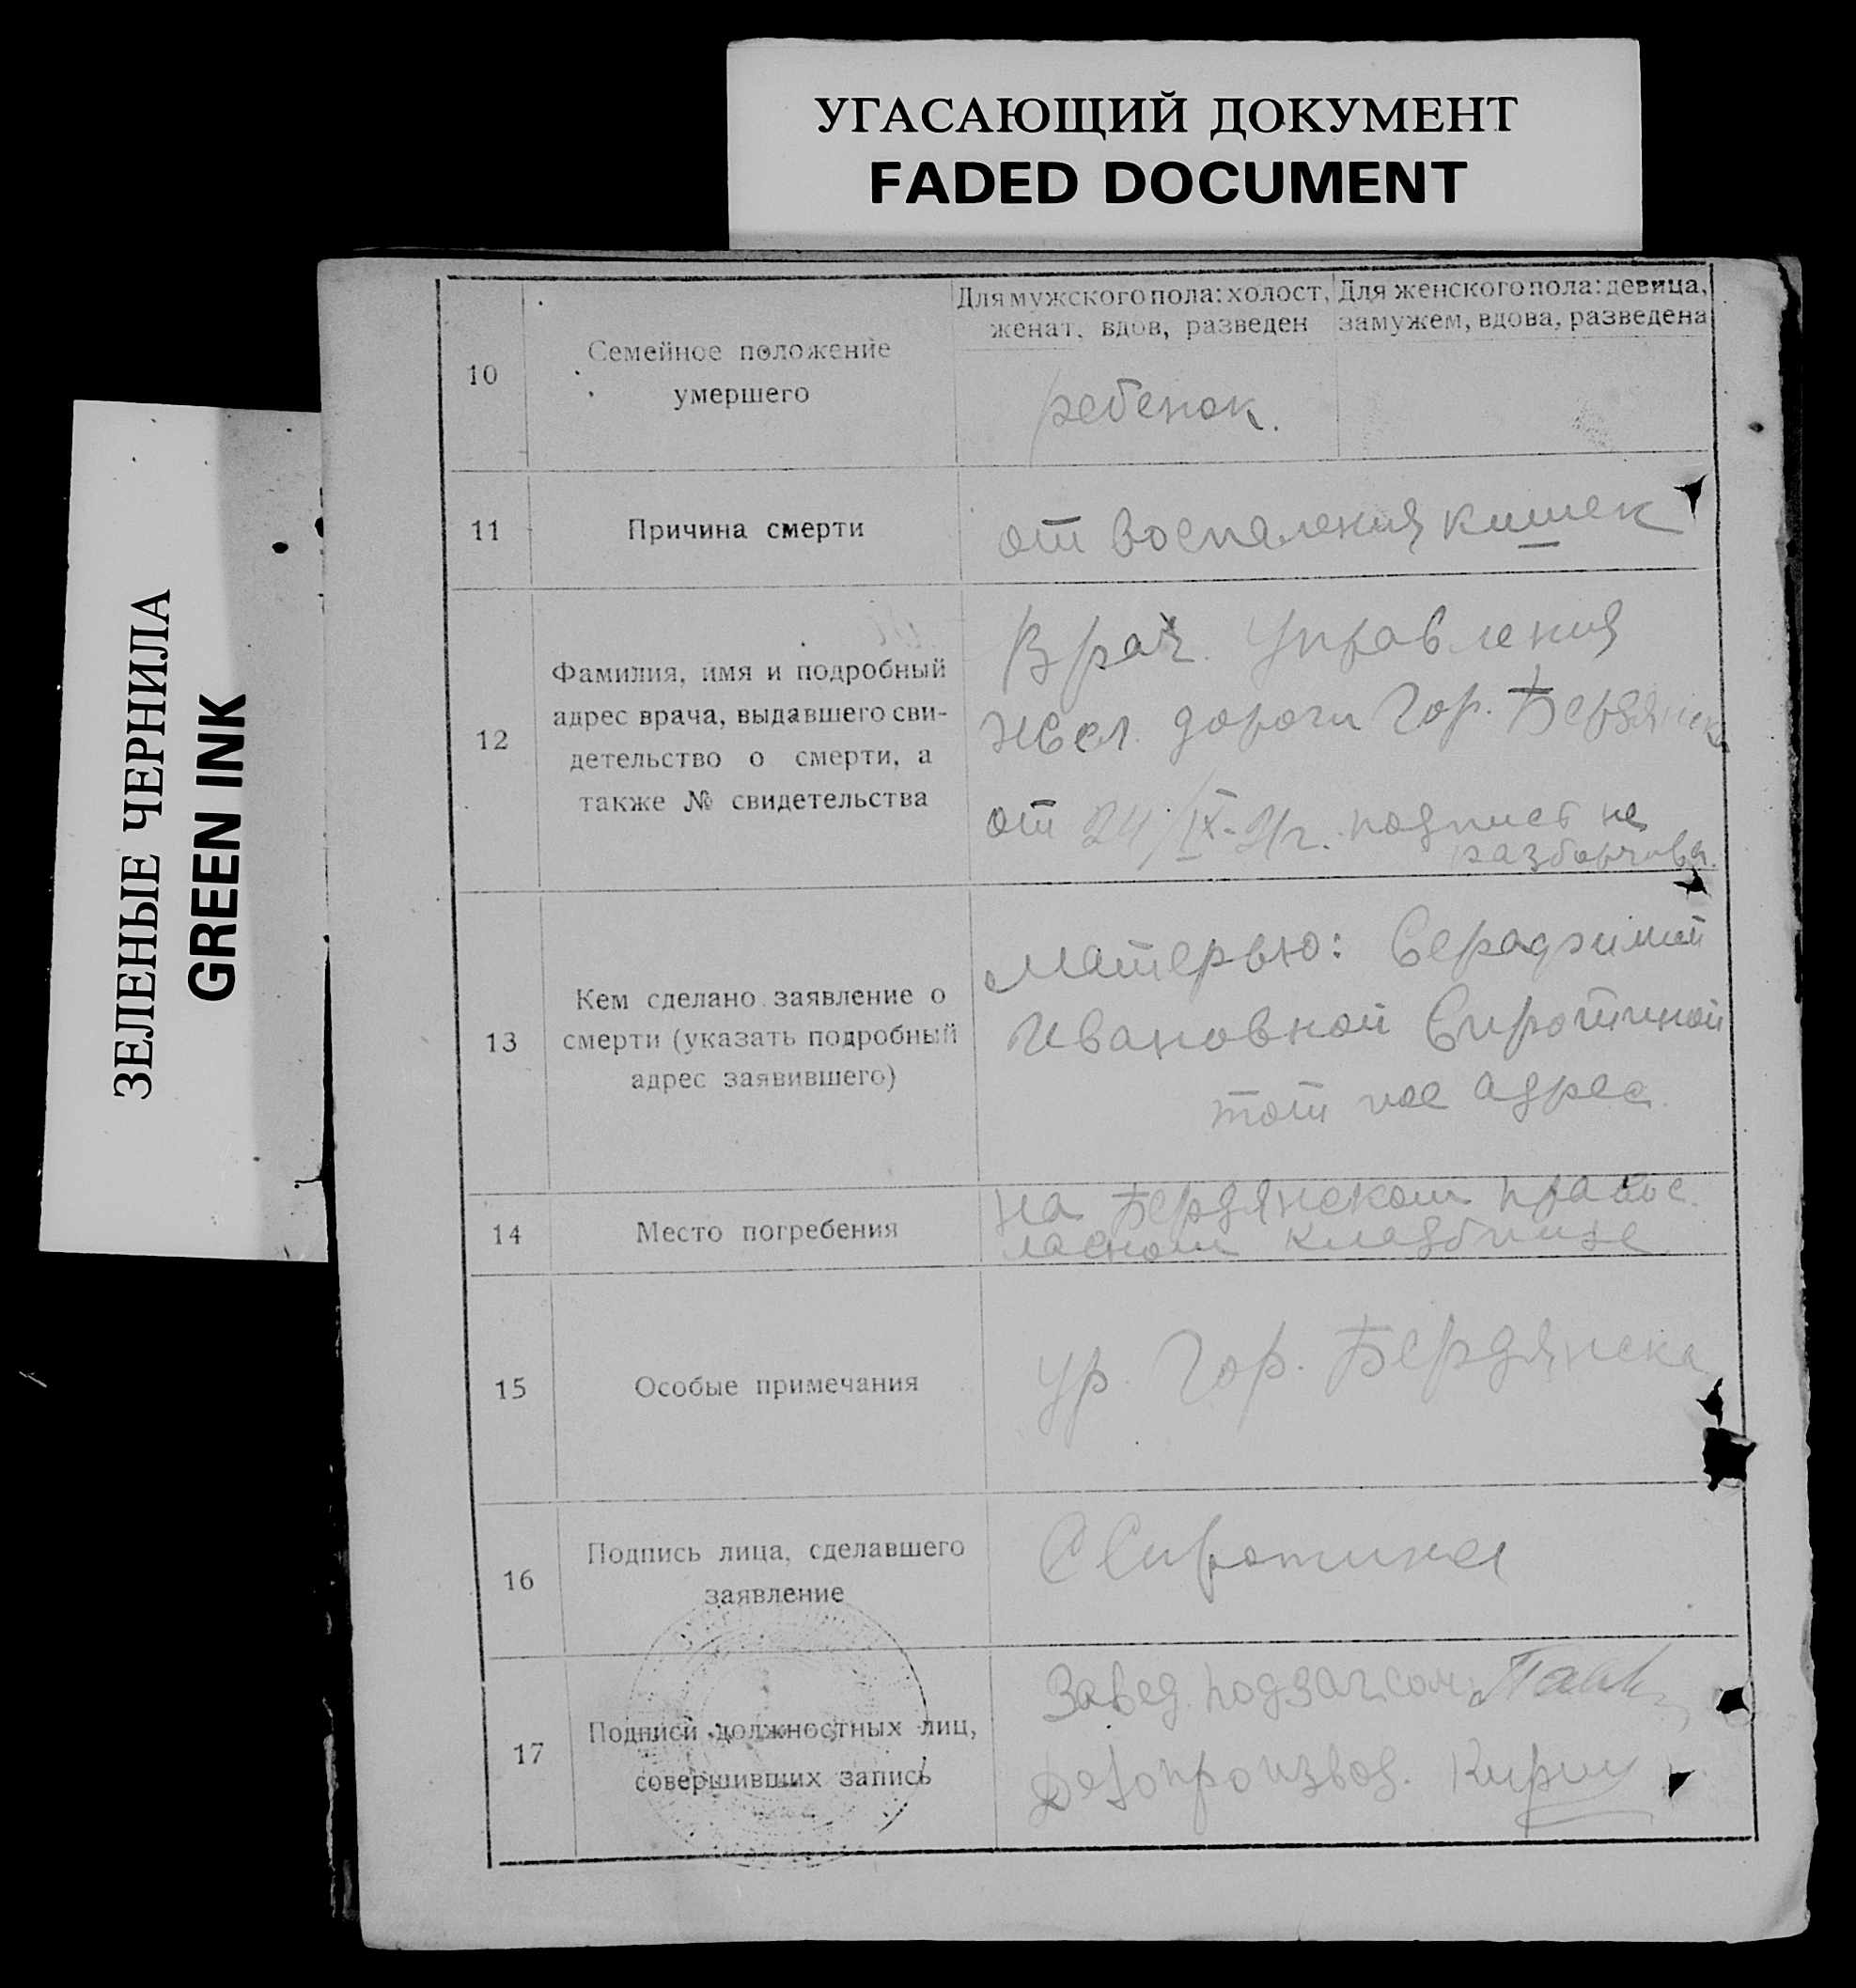 УГАСАЮЩИЙ ДОКУМЕНТ
FADED DOCUMENT
ЗЕЛЕНЫЕ ЧЕРНИЛА
GREEN INK
10
Семейное положение
умершего
Для мужского пола: холост,
женат, вдов, разведен
Для женского пола: девица,
замужем, вдова, разведена
ребенок.
11
Причина смерти
от воспаления кишек
12
Фамилия, имя и подробный
адрес врача, выдавшего сви-
детельство о смерти, а
также № свидетельства
Врач. Управления
жел. дороги Гор. Бердянска
от 24/IX-21г. подпись не
разборчива.
13
Кем сделано заявление о
смерти (указать подробный
адрес заявившего)
Матерью: Серафимой
Ивановной Сиротиной
тот же адрес.
14
Место погребения
на Бердянском правос.
лавном кладбище.
15
Особые примечания
ур. Гор. Бердянска
16
Подпись лица, сделавшего
заявление
С Сиротина
17
Подписи должностных лиц,
совершивших запись
Завед. подзагсом
Делопроизвод.